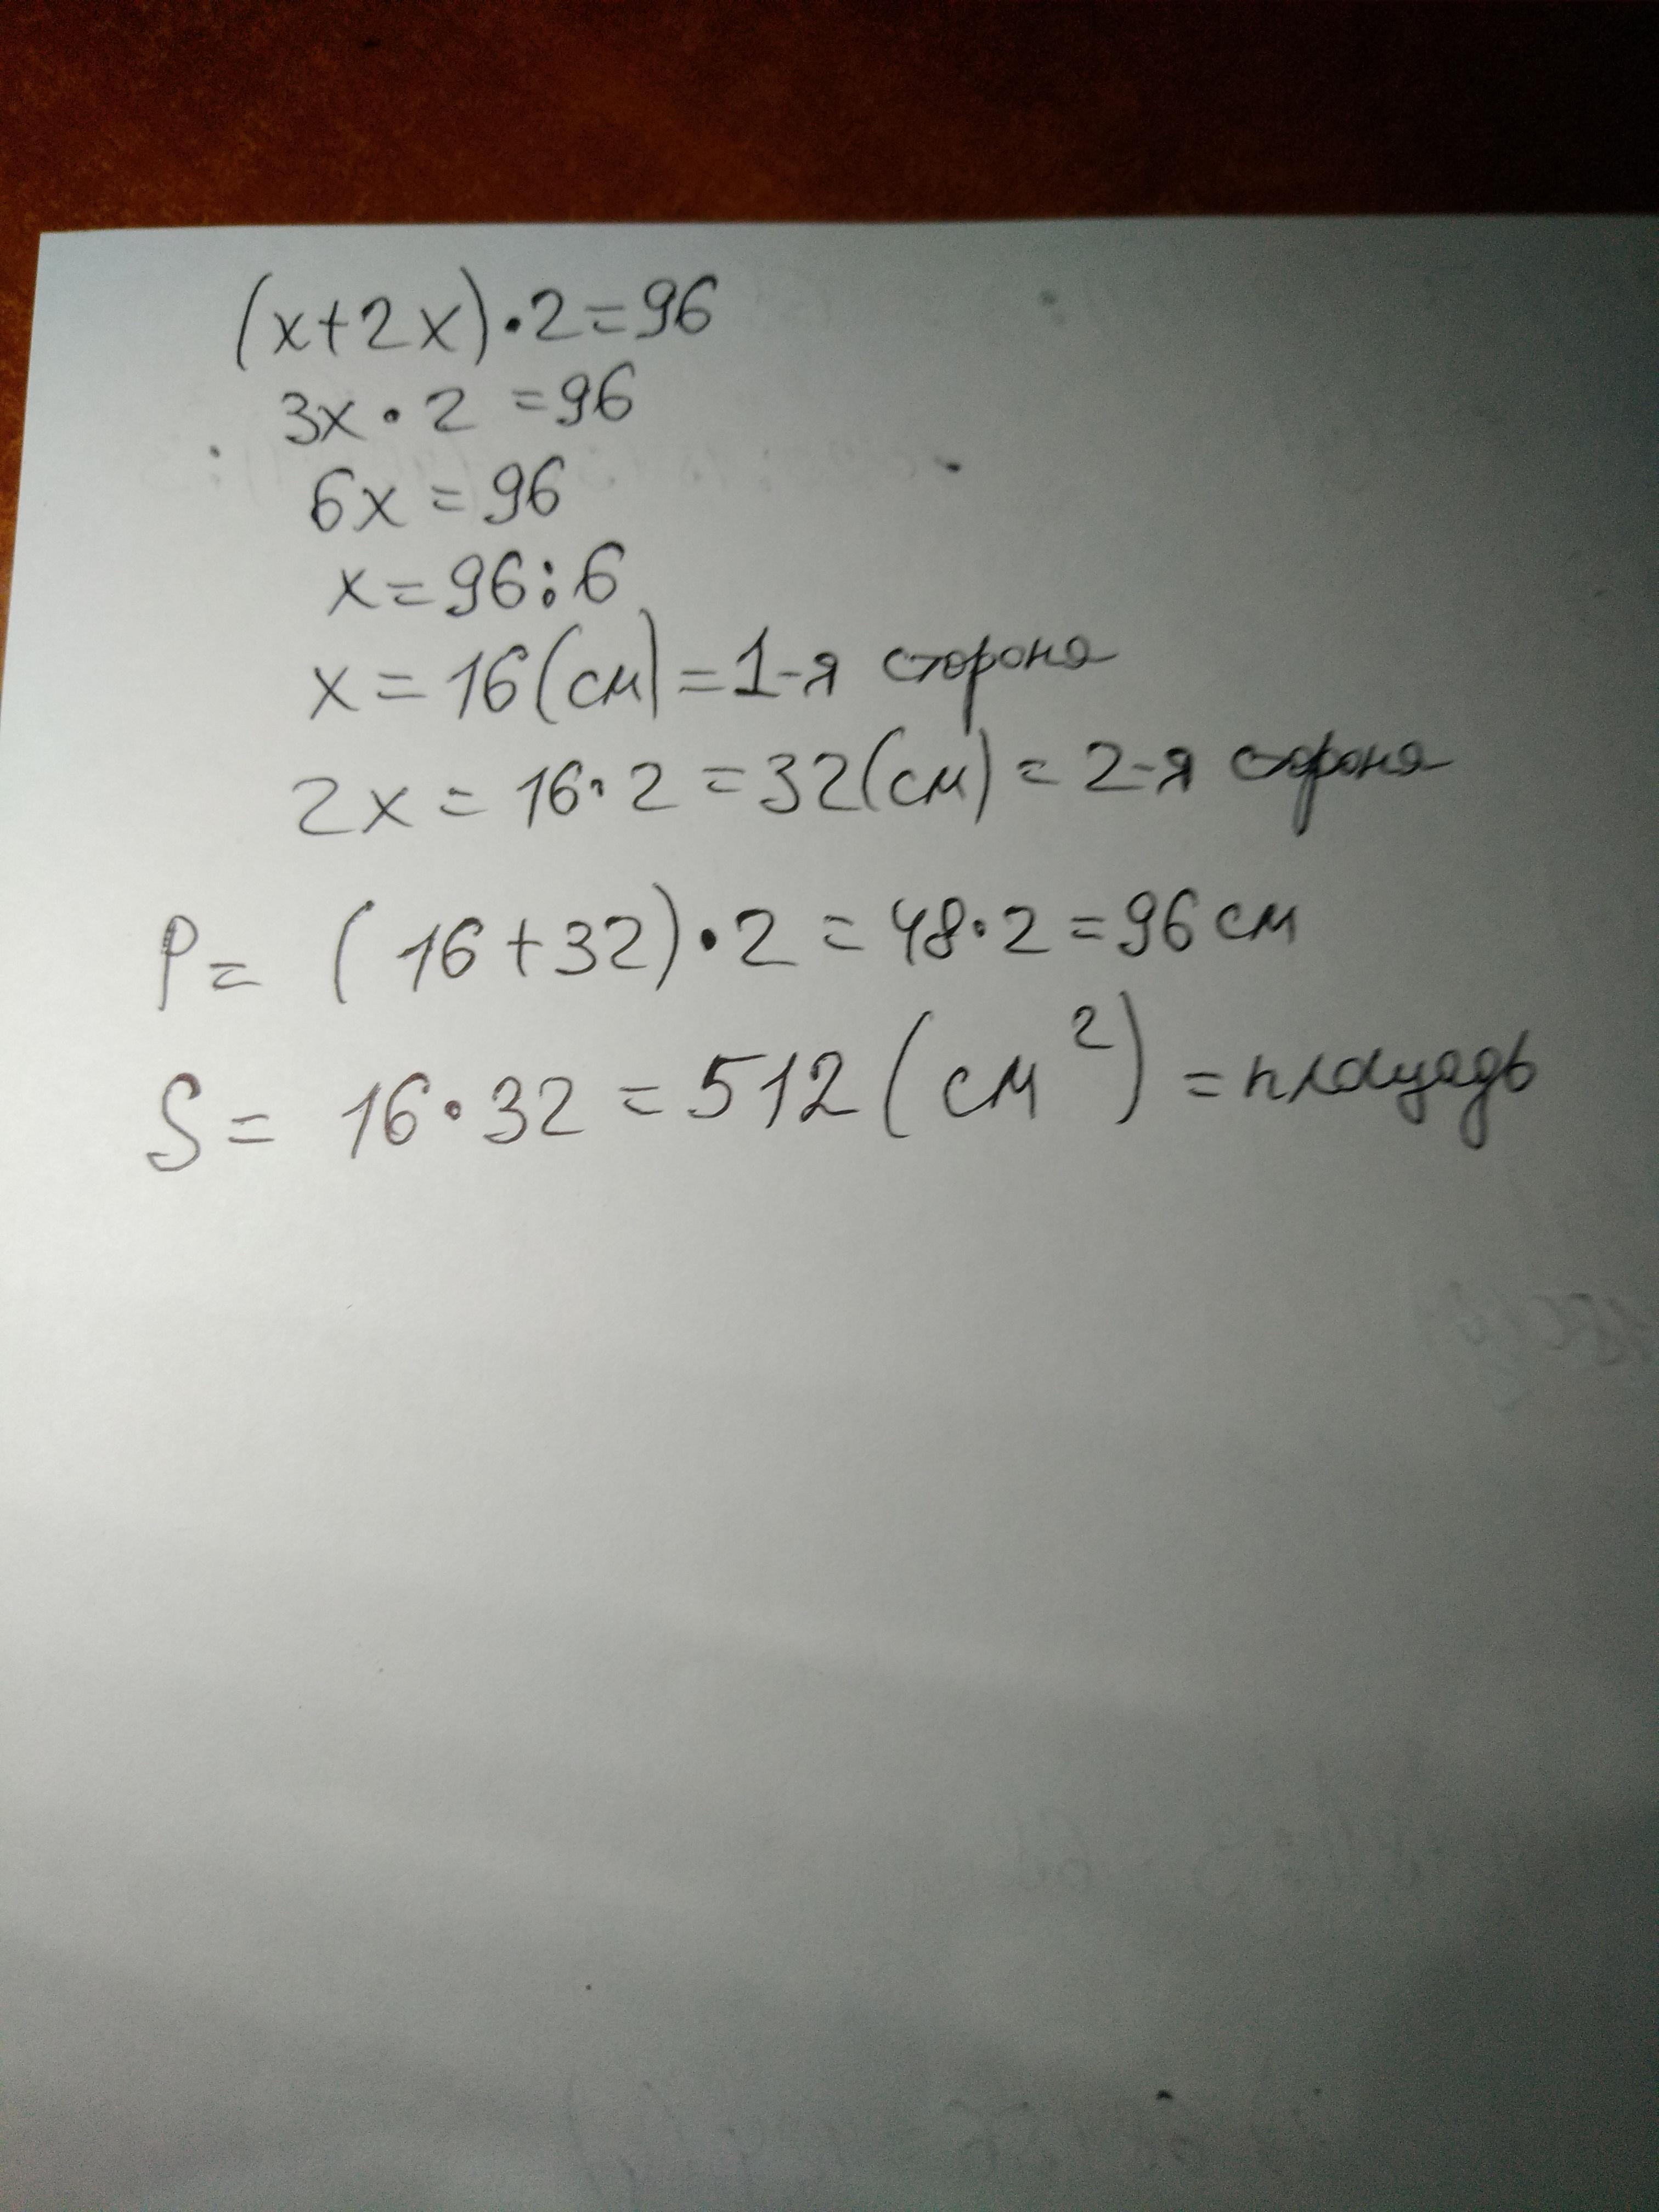 (x+2x)·2=96
3x·2=96
6x=96
x=96:6
x=16(см)=1-я сторона
2x=16·2=32(см)=2-я сторона
P=(16+32)·2=48·2=96 см
S=16·32=512(см²)=площадь